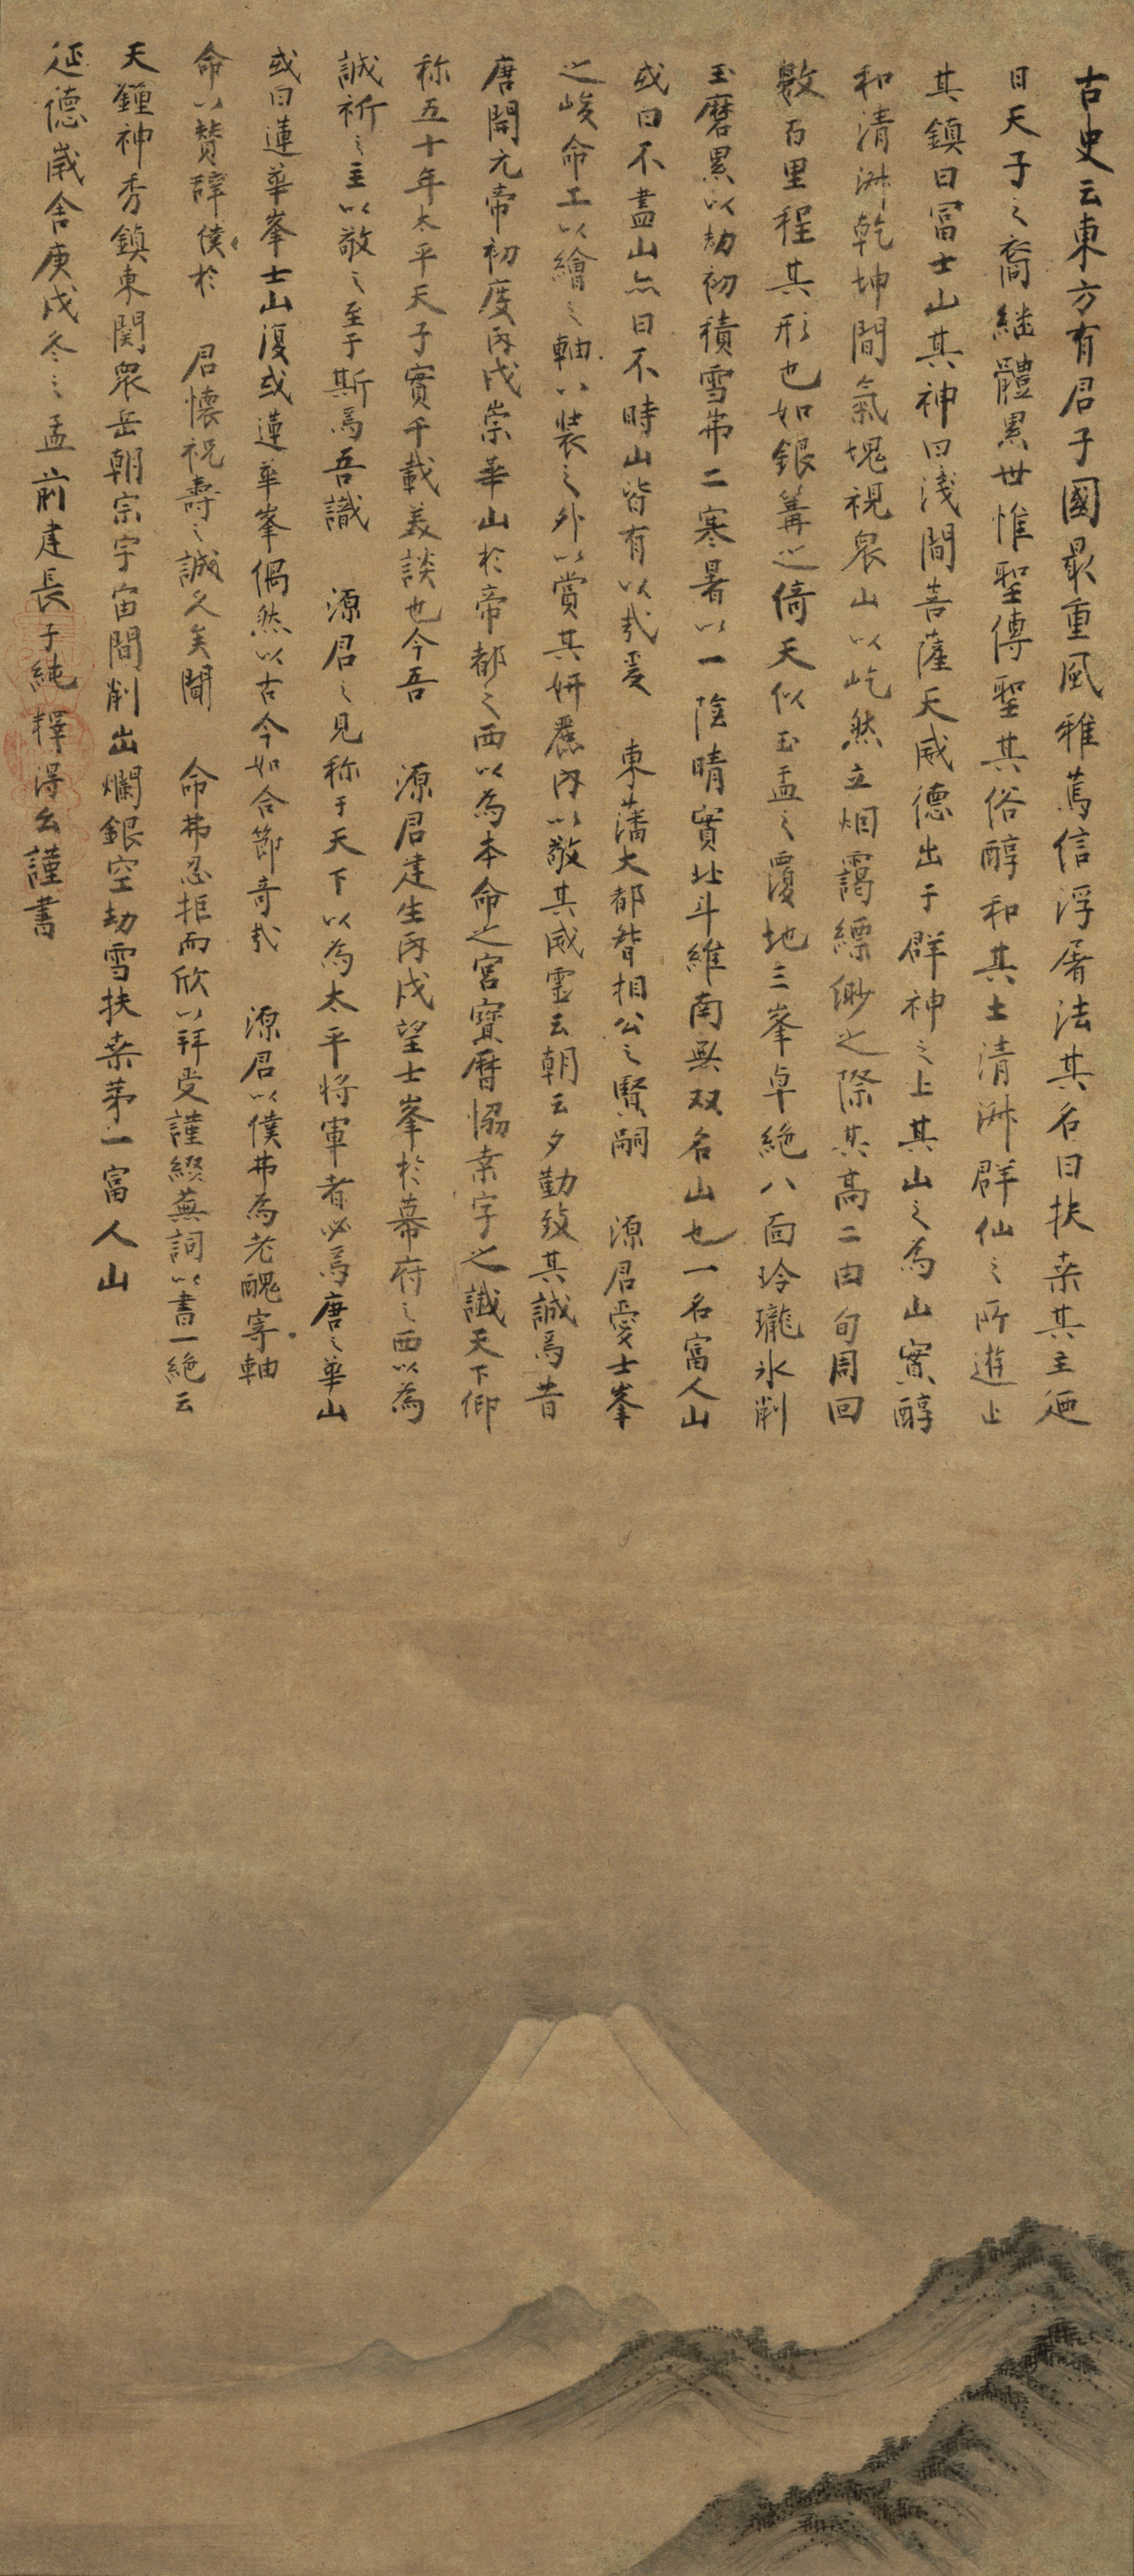 古史云東方有君子國最重風雅篤信浮屠法其名曰扶桒其主廼
日天子之裔継體累世惟聖傳聖其俗醇和其土清淋群仙之所遊止
其鎮曰冨士山其神曰浅間菩薩天威德出于群神之上其山之為山實醇
和清淋乾坤間氣塊視衆山以屹然立烟靄縹緲之際其高二由旬周回
數百里程其形也如銀篝之倚天似玉盂之覆地三峯卓絶八面玲瓏氷削
玉磨累以劫初積雪弗二寒暑以一陰晴實北斗維南無双名山也一名富人山
或曰不盡山亦曰不時山皆有以哉爰 東藩大都督相公之賢嗣 源君愛士峯
之峻命工以繪之軸以装之外以賞其妍麗内以敬其威霊云朝云夕勤致其誠焉昔
唐開元帝初度丙戌崇華山於帝都之西以為本命之宮寶暦恊桒字之讖天下仰
称五十年太平天子實千載美談也今吾 源君建生丙戌望士峯於幕府之西以為
誠祈之主以敬之至于斯焉吾識 源君之見称于天下以為太平将軍者必焉唐之華山
或曰蓮華峯士山復或蓮華峯偶然以古今如合節奇哉 源君以僕弗為老醜寄軸
命以賛辞僕於 君懐祝壽之誠久矣聞 命弗忍拒而欣以拜受謹綴蕪詞以書一絶云
天鍾神秀鎮東関衆岳朝宗宇宙間削出爛銀空劫雪扶桒第一富人山
延德歳舎庚戌冬之孟前建長子純釋得么謹書